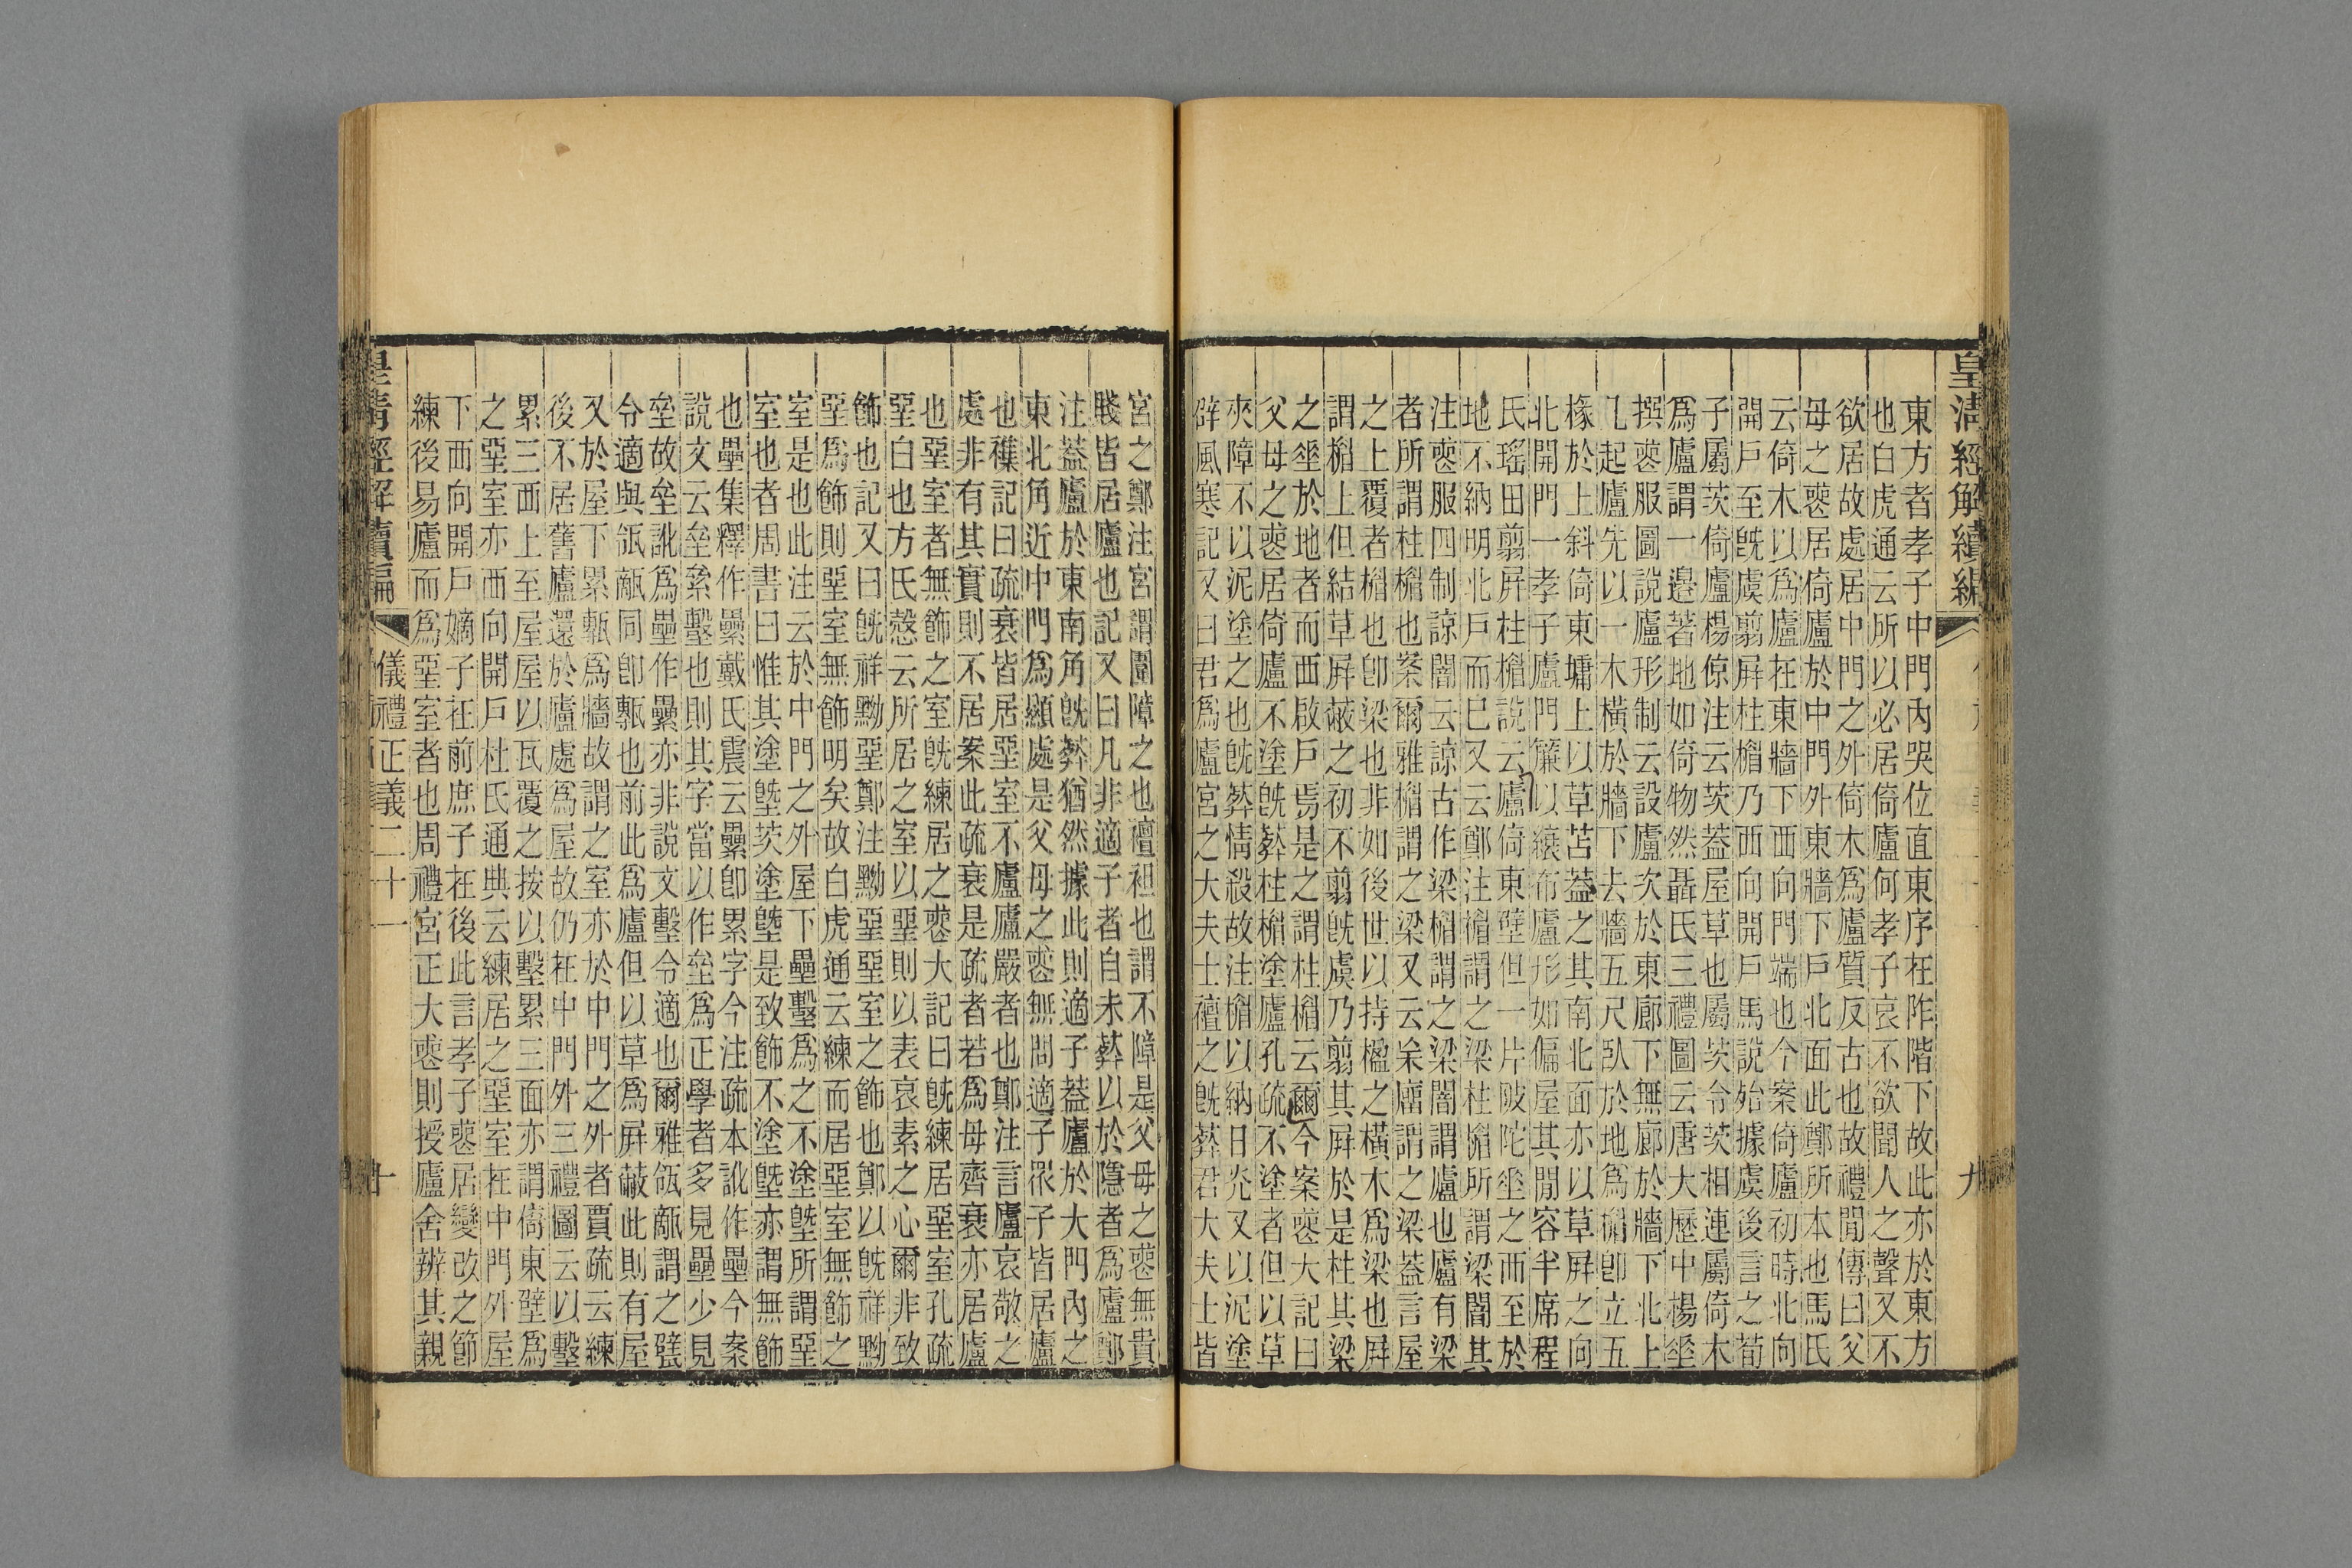 皇清經解續編
九
東方者孝子中門內哭位直東序在阼階下故此亦於東方
也白虎通云所以必居倚廬何孝子哀不欲聞人之聲又不
欲居故處居中門之外倚木爲廬質反古也故禮閒傳曰父
母之喪居倚廬於中門外東牆下戶北面此鄭所本也馬氏
云倚木以爲廬在東牆下西向門端也今案倚廬初時北向
開戶至旣虞翦屛柱楣乃西向開戶馬說殆據虞後言之荀
子屬茨倚廬楊倞注云茨蓋屋草也屬茨令茨相連屬倚木
爲廬謂一邉著地如倚物然聶氏三禮圖云唐大歷中楊垂
撰喪服圖說廬形制云設廬次於東廊下無廊於牆下北上
凡起廬先以一木橫於牆下去牆五尺臥於地爲楣卽立五
椽於上斜倚東墉上以草苫蓋之其南北面亦以草屛之向
北開門一孝子廬門簾以縗布廬形如偏屋其閒容半席程
氏瑤田翦屛柱楣說云廬倚東壁但一片陂陀垂之而至於
地不納明北戶而已又云鄭注楣謂之梁柱楣所謂梁闇其
注喪服四制諒闇云諒古作梁楣謂之梁闇謂廬也廬有梁
者所謂柱楣也案爾雅楣謂之梁又云杗廇謂之梁蓋言屋
之上覆者楣也卽梁也非如後世以持楹之橫木爲梁也屛
謂楣上但結草屛蔽之初不翦旣虞乃翦其屛於是柱其梁
之垂於地者而西啟戶焉是之謂柱楣云爾今案喪大記曰
父母之喪居倚廬不塗旣葬柱楣塗廬孔疏不塗者但以草
夾障不以泥塗之也旣葬情殺故注楣以納日光又以泥塗
辟風寒記又曰君爲廬宮之大夫士襢之旣葬君大夫士皆
宮之鄭注宮謂圍障之也襢袒也謂不障是父母之喪無貴
賤皆居廬也記又曰凡非適子者自未葬以於隱者爲廬鄭
注蓋廬於東南角旣葬猶然據此則適子蓋廬於大門內之
東北角近中門爲顯處是父母之喪無問適子衆子皆居廬
也禭記曰疏衰皆居堊室不廬廬嚴者也鄭注言廬哀敬之
處非有其實則不居案此疏衰是疏者若爲母齊衰亦居廬
也堊室者無飾之室旣練居之喪大記曰旣練居堊室孔疏
堊白也方氏慤云所居之室以堊則以表哀素之心爾非致
飾也記又曰旣祥黝堊鄭注黝堊堊室之飾也鄭以旣祥黝
堊爲飾則堊室無飾明矣故白虎通云練而居堊室無飾之
室是也此注云於中門之外屋下壘墼爲之不塗塈所謂堊
室也者周書曰惟其塗塈茨塗塈是致飾不塗塈亦謂無飾
也壘集釋作纍戴氏震云纍卽累字今注疏本訛作壘今案
說文云垒絫墼也則其字當以作垒爲正學者多見壘少見
垒故垒訛爲壘作纍亦非說文墼令適也爾雅瓴甋謂之甓
令適與瓴甋同卽甎也前此爲廬但以草爲屛蔽此則有屋
又於屋下累甎爲牆故謂之室亦於中門之外者賈疏云練
後不居舊廬還於廬處爲屋故仍在中門外三禮圖云以墼
累三面上至屋屋以瓦覆之按以墼累三面亦謂倚東壁爲
之堊室亦西向開戶杜氏通典云練居之堊室在中門外屋
下西向開戶嫡子在前庶子在後此言孝子喪居變改之節
練後易廬而爲堊室者也周禮宮正大喪則授廬舍辨其親
皇清經解續編
儀禮正義二十一
十